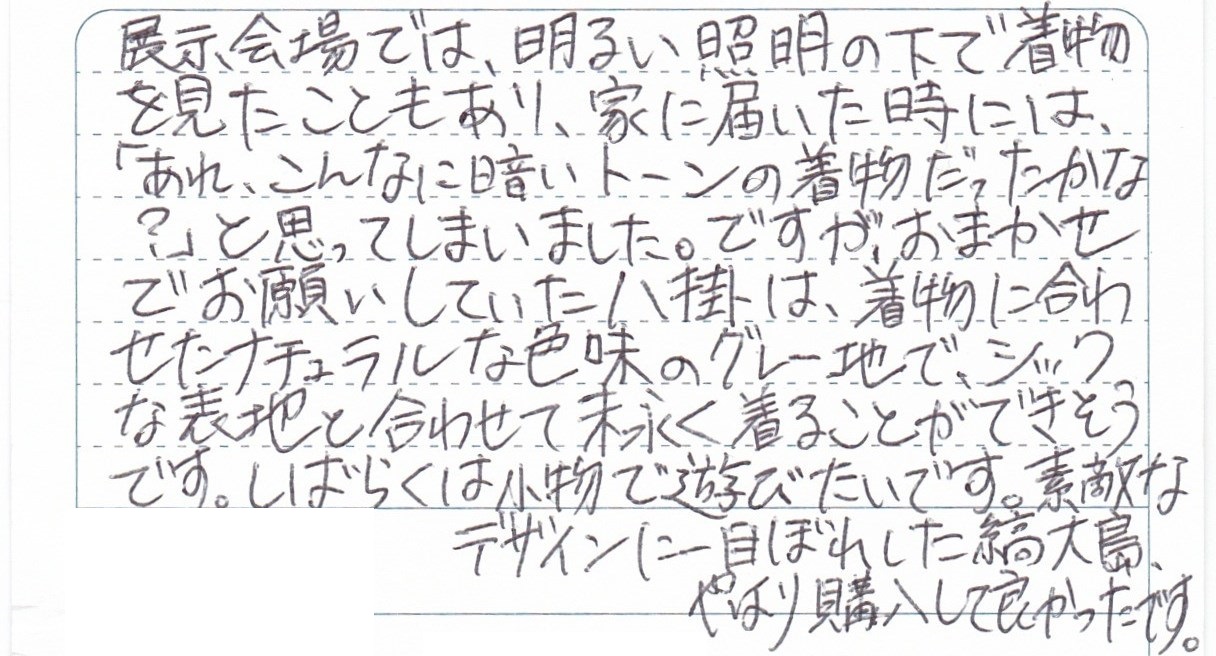 展示会場では、明るい照明の下で着物
を見たこともあり、家に届いた時には、
「あれ、こんなに暗いトーンの着物だったかな
？」と思ってしまいました。ですが、おまかせ
でお願いしていた八掛は、着物に合わ
せたナチュラルな色味のグレー地で、シック
な表地と合わせて末永く着ることができそう
です。しばらくは小物で遊びたいです。素敵な
デザインに一目ぼれした縞大島、
やはり購入して良かったです。